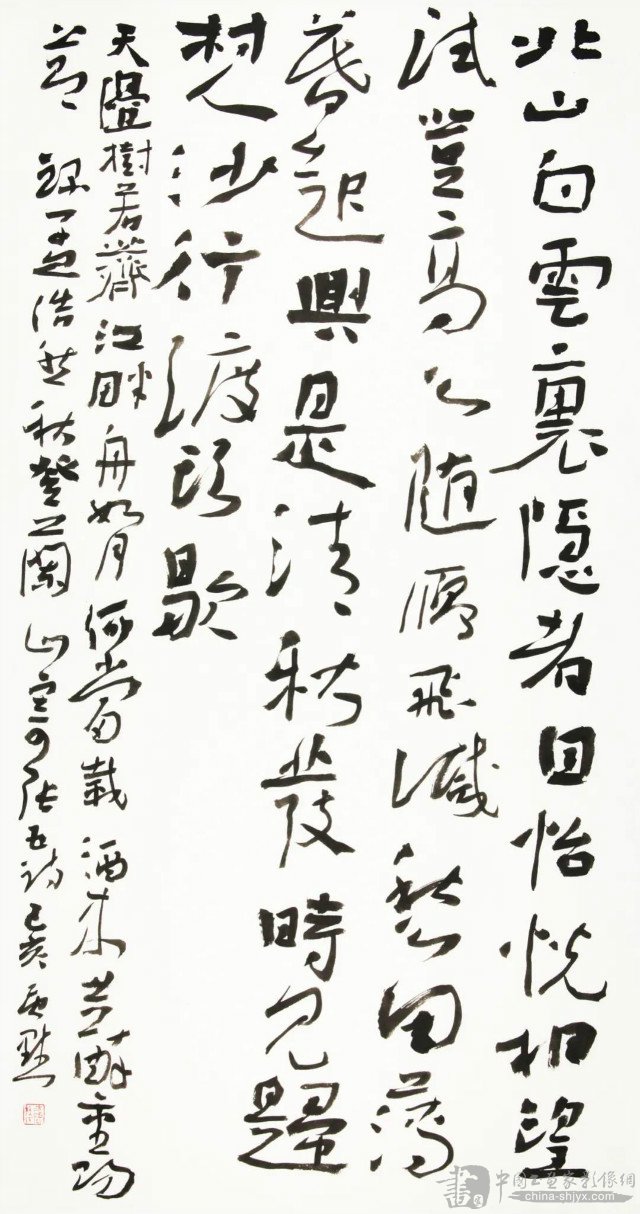 北山白雲裏隱者自怡悅相望
試登高心随雁飛滅愁因薄
暮起興是清秋發時見歸
村人沙行渡頭歇
天邊樹若薺江畔舟如月何當載酒來共醉重陽
節 録孟浩然秋登蘭山寄张五詩 己亥
書
中国书画家影像網
china-shjyx.com